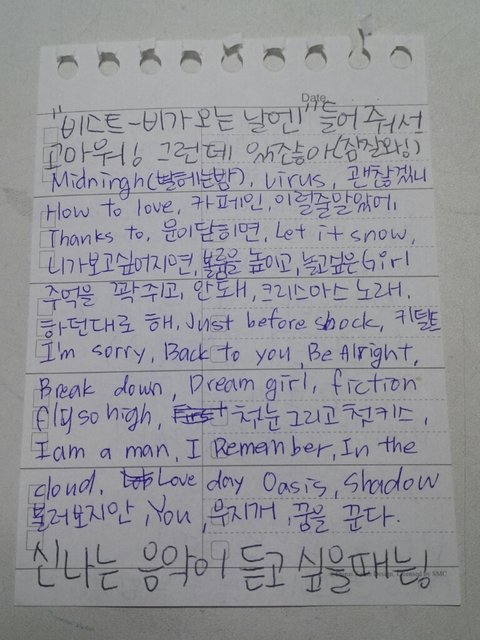 Date
"비스트-비가 오는 날엔" 들어 줘서
고마워! 그런데 있잖아(잠잘와!)
Midningh(별헤는밤), Virus, 괜찮겠니
How to love, 카페인, 이럴줄알았어,
Thanks to, 문이닫히면, Let it snow,
니가보고싶어지면, 볼륨을 높이고, 놀고싶은Girl
주먹을 꽉쥐고, 안돼, 크리스마스 노래,
하던대로 해, Just before shock,
I'm sorry, Back to you, Be Alright,
Break down, Dream girl, fiction
fly so high, 첫눈 그리고 첫키스,
I am a man, I Remember, In the
cloud, Love day Oasis, Shadow
불러보지만, You, 무지개, 꿈을 꾼다.
신나는 음악이 듣고 싶을때는!
SMC